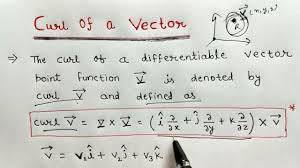 Curl of a Vector
(x, y, z)
⇒ The curl of a differentiable vector
point function V⃗ is denoted by
curl V⃗ and defined as
curl V⃗ = ∇ × V⃗ = (î ∂/∂x + ĵ ∂/∂y + k̂ ∂/∂z) × V⃗ *
V⃗ = v₁î + v₂ĵ + v₃k̂